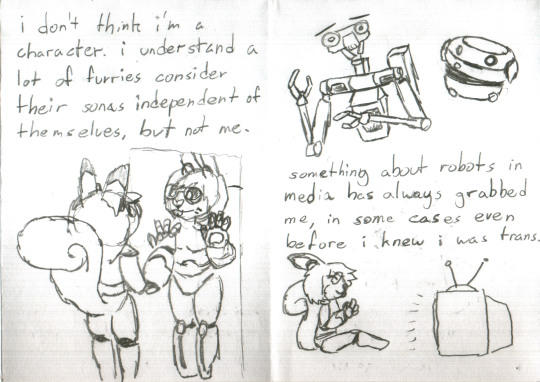 i don't think i'm a
character. i understand a
lot of furries consider
their sonas independent of
themselves, but not me.
something about robots in
media has always grabbed
me, in some cases even
before i knew i was trans.